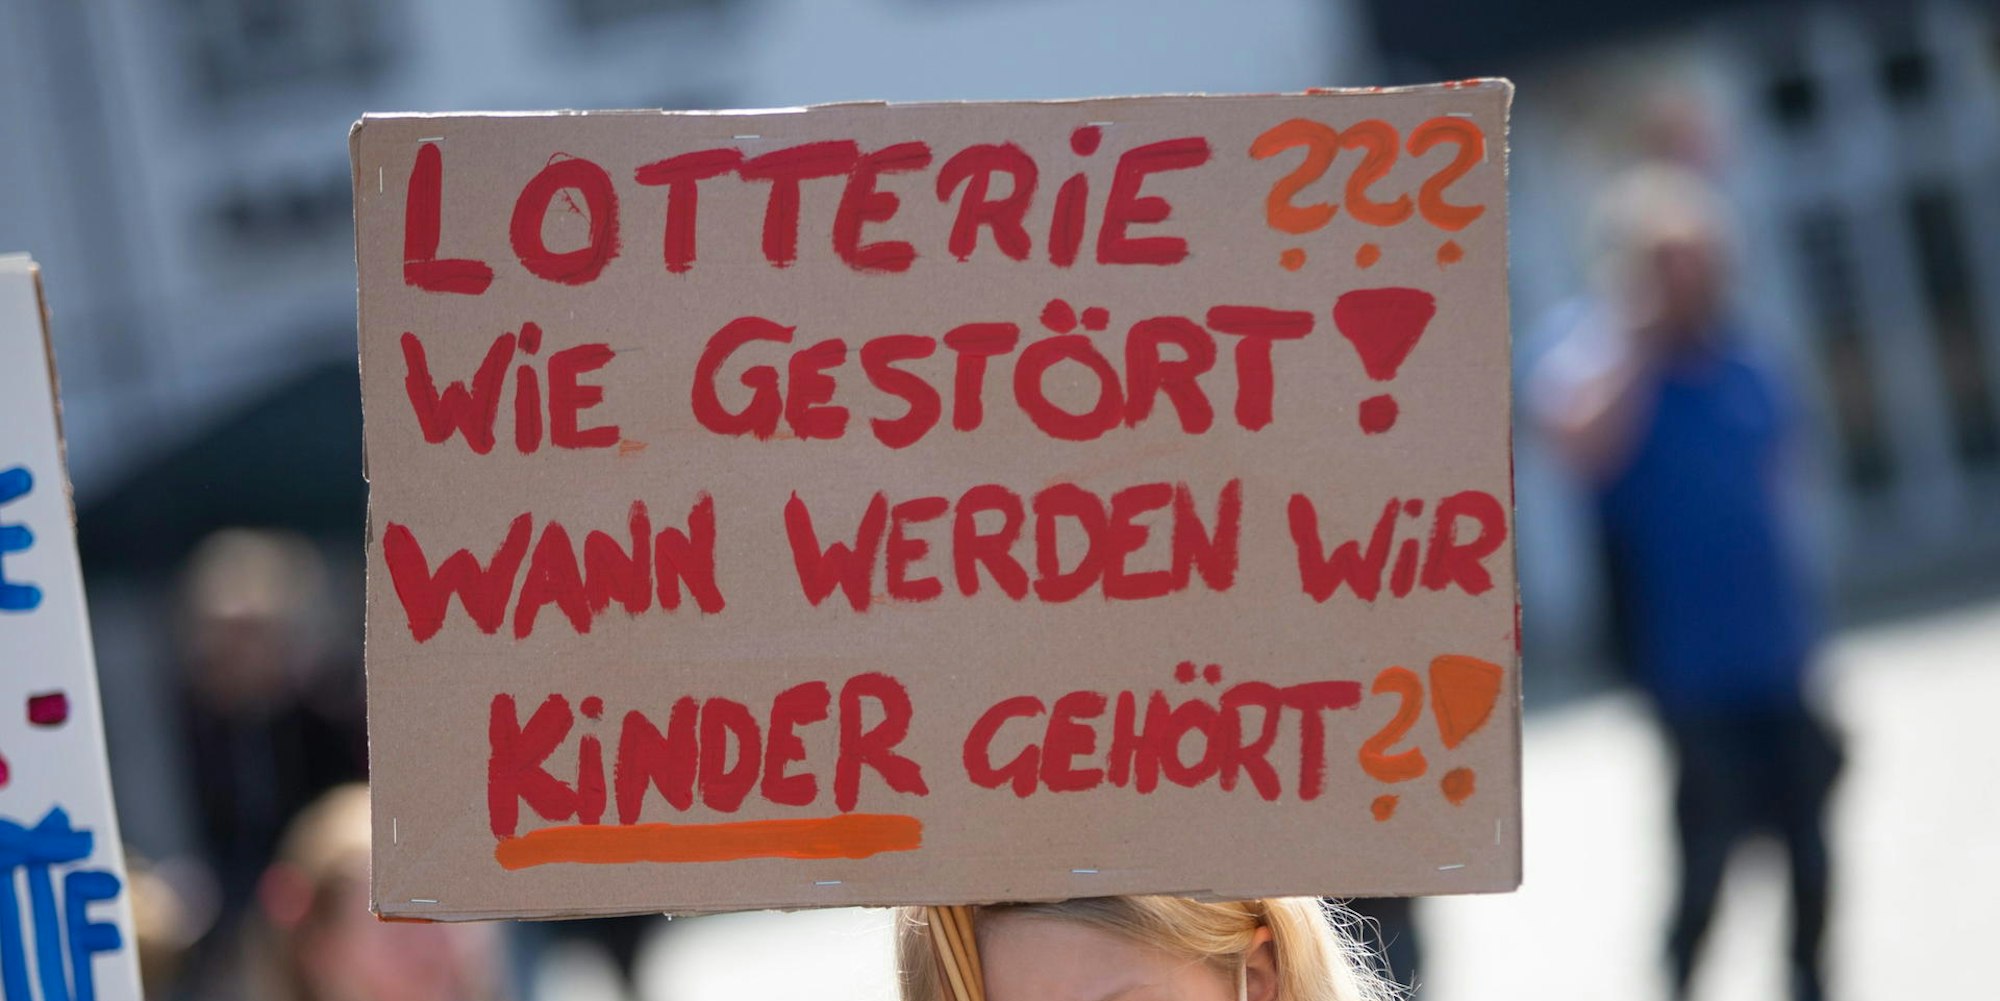 LOTTERIE ???
WIE GESTÖRT!
WANN WERDEN WIR
KINDER GEHÖRT?!